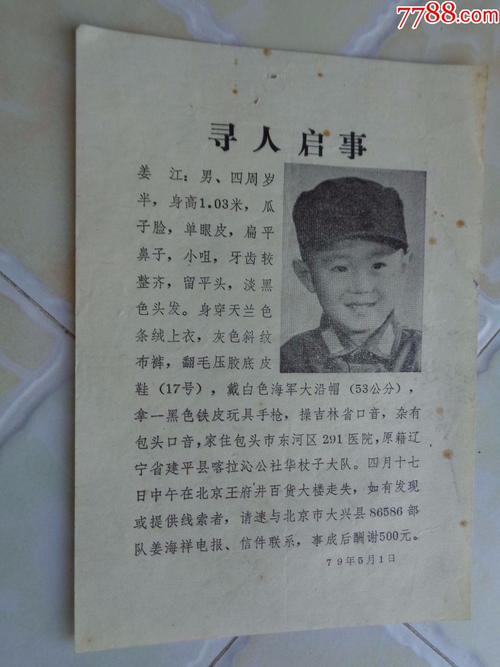 7788.com
寻人启事
姜　江：男、四周岁
半，身高1.03米，瓜
子脸，单眼皮，扁平
鼻子，小咀，牙齿较
整齐，留平头，淡黑
色头发。身穿天兰色
条绒上衣，灰色斜纹
布裤，翻毛压胶底皮
鞋（17号），戴白色海军大沿帽（53公分），
拿一黑色铁皮玩具手枪，操吉林省口音，杂有
包头口音，家住包头市东河区291医院，原籍辽
宁省建平县喀拉沁公社华杖子大队。四月十七
日中午在北京王府井百货大楼走失，如有发现
或提供线索者，请速与北京市大兴县86586部
队姜海祥电报、信件联系，事成后酬谢500元。
79年5月1日